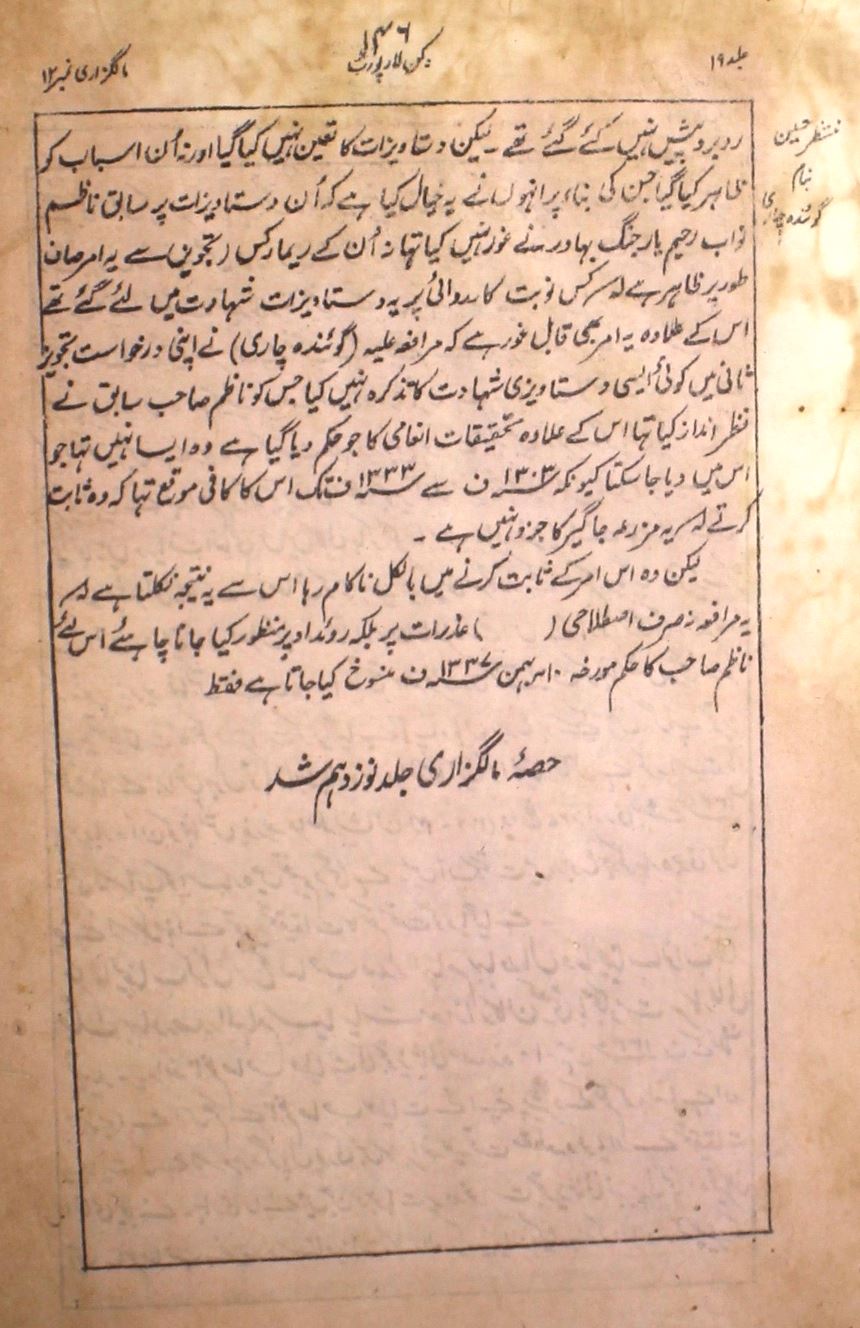 جلد ۱۹
۱۴۶
دکن لا رپورٹ
مالگزاری نمبر ۱۲
منتظر حسین
بنام
گوئندہ چاری
روبرو پیش نہیں کئے گئے تھے ۔ لیکن دستاویزات کا تعین نہیں کیا گیا اور نہ اُن اسباب کو
ظاہر کیا گیا جن کی بناء پر انہوں نے یہ خیال کیا ہے کہ اُن دستاویزات پر سابق ناظم
نواب رحیم یار جنگ بہادر نے غور نہیں کیا تہا نہ اُن کے ریمارکس (تجویز) سے یہ امر صاف
طور پر ظاہر ہے کہ کس نوبت کارروائی پر یہ دستاویزات شہادت میں لئے گئے تھے
اس کے علاوہ یہ امر بھی قابل غور ہے کہ مرافعہ علیہ (گوئندہ چاری) نے اپنی درخواست تجویز
ثانی میں کوئی ایسی دستاویزی شہادت کا تذکرہ نہیں کیا جس کو ناظم صاحب سابق نے
نظر انداز کیا تہا اس کے علاوہ تحقیقات انعامی کا جو حکم دیا گیا ہے وہ ایسا نہیں تہا جو
اس میں دیا جا سکتا کیونکہ ۱۳۰۳ ف سے ۱۳۳۳ ف تک اس کا کافی موقع تہا کہ وہ ثابت
کرتے کہ یہ مزرعہ جاگیر کا جزو نہیں ہے ۔
لیکن وہ اس امر کے ثابت کرنے میں بالکل ناکام رہا اس سے یہ نتیجہ نکلتا ہے کہ
یہ مرافعہ نہ صرف اصطلاحی ( ) عذرات پر بلکہ روئداد پر منظور کیا جانا چاہئے اس لئے
ناظم صاحب کا حکم مورخہ ۱۰ بہمن ۱۳۳۷ ف منسوخ کیا جاتا ہے فقط
حصۂ مالگزاری جلد نوزدہم شد